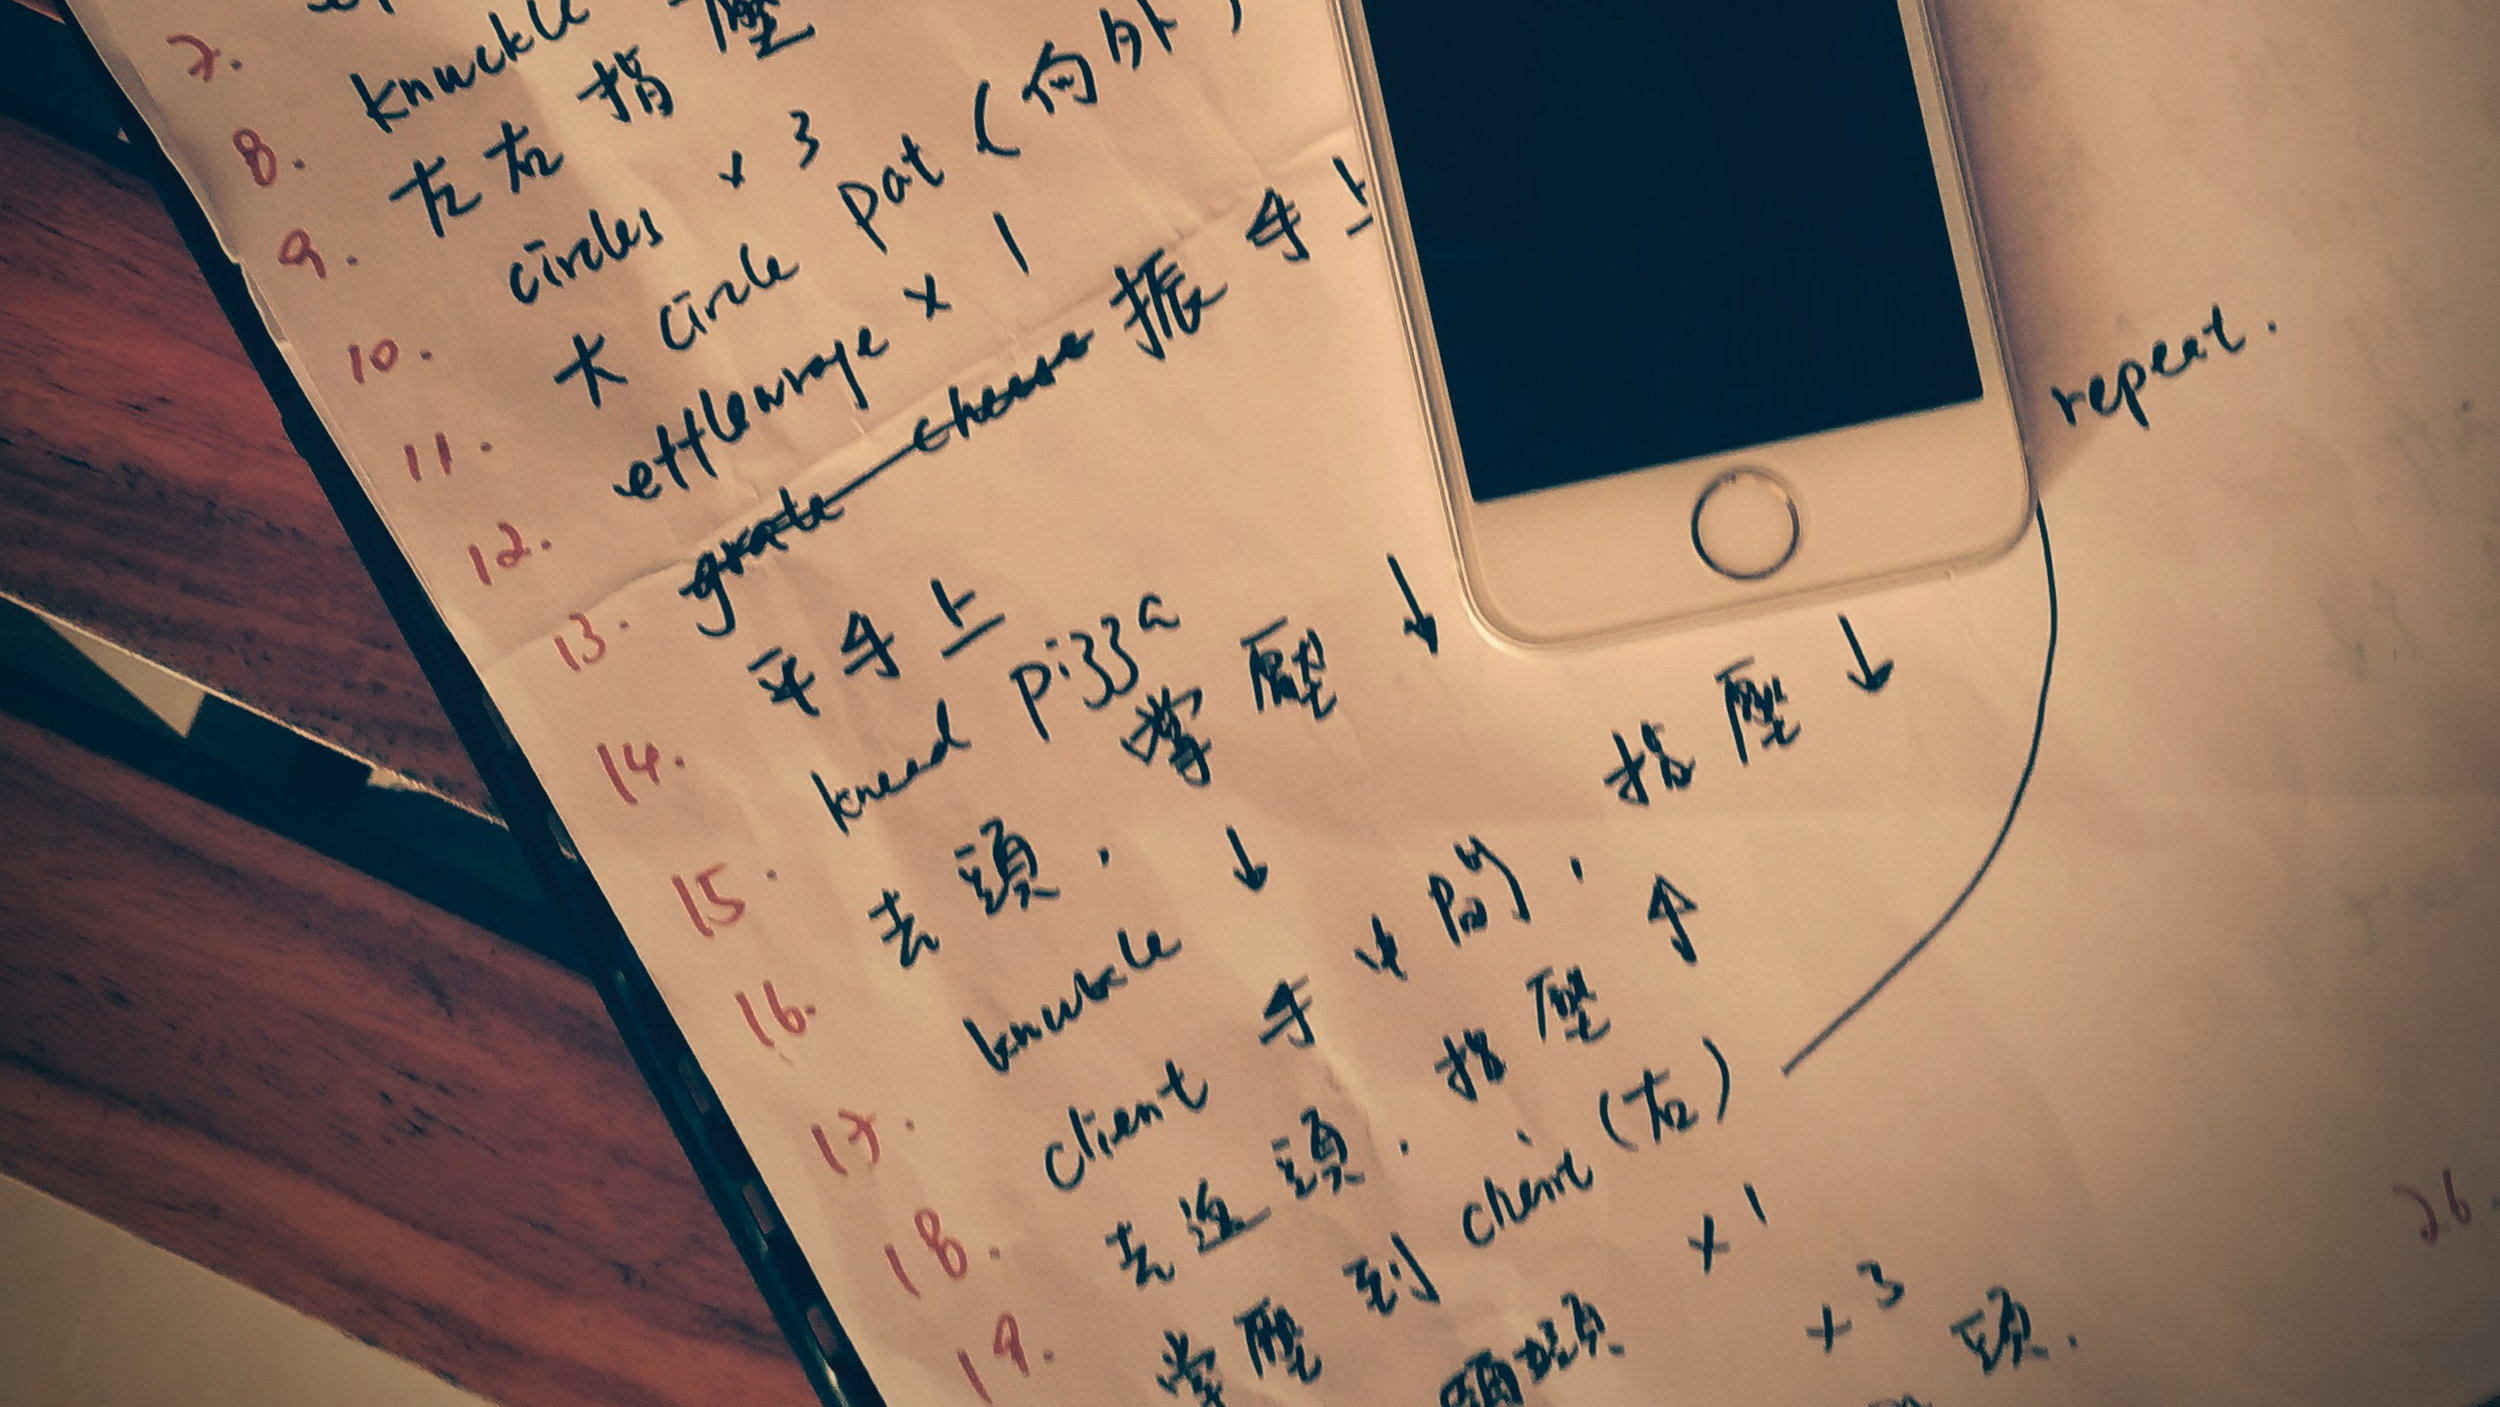 7.
8. knuckle
9. 左右指壓
10. circles x 3
11. 大 circle pat (向外)
12. effleurage x 1
13. grate cheese 振手上
14. 平手上
15. knead pizza
16. 去頭. 掌壓 ↓
17. knuckle ↓
18. client 手中間. 指壓 ↓
19. 去近頭. 指壓 ↑
掌壓到 client (右)
repeat.
x 1
x 3
頭.
26.